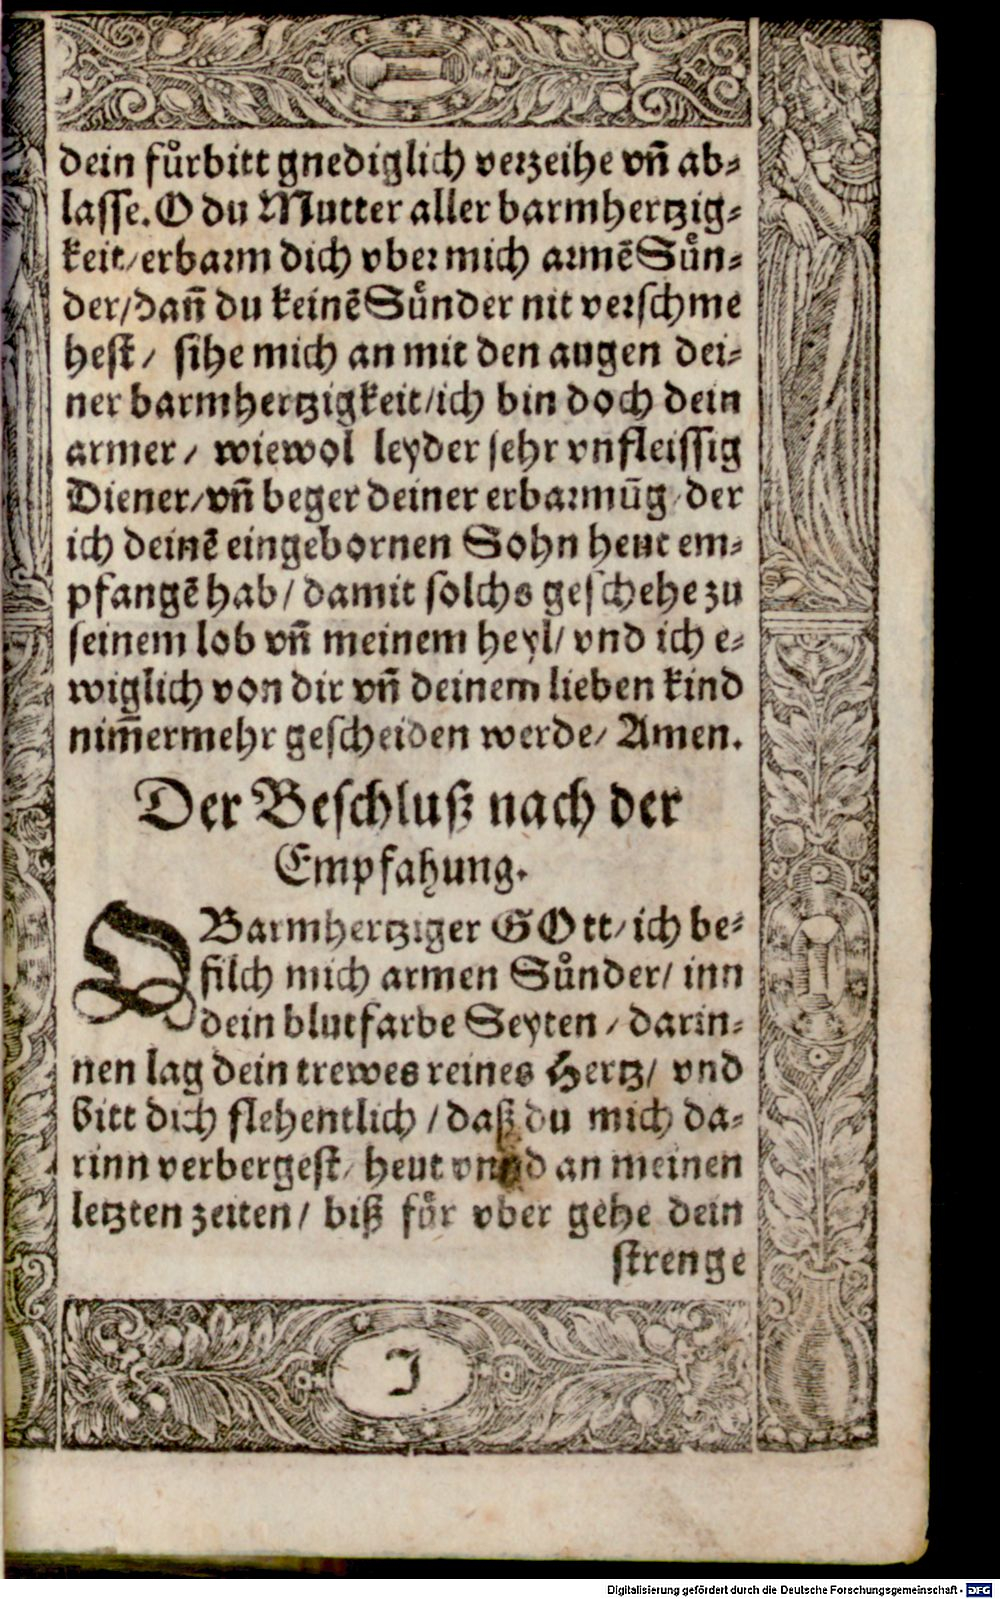 dein fuͤrbitt gnediglich verzeihe vñ ab⸗
lasse. O du Mutter aller barmhertzig⸗
keit/ erbarm dich vber mich armẽ Suͤn⸗
der/ dañ du keinẽ Suͤnder nit verschme
hest/ sihe mich an mit den augen dei⸗
ner barmhertzigkeit/ ich bin doch dein
armer/ wiewol leyder sehr vnfleissig
Diener/ vñ beger deiner erbarmũg/ der
ich deinẽ eingebornen Sohn heut em⸗
pfangẽ hab/ damit solchs geschehe zu
seinem lob vñ meinem heyl/ vnd ich e⸗
wiglich von dir vñ deinem lieben kind
nim̃ermehr gescheiden werde/ Amen.
Der Beschluß nach der
Empfahung.
O Barmhertziger GOtt/ ich be⸗
filch mich armen Suͤnder/ inn
dein blutfarbe Seyten/ darin⸗
nen lag dein trewes reines Hertz/ vnd
bitt dich flehentlich/ daß du mich da⸗
rinn verbergest/ heut vnnd an meinen
letzten zeiten/ biß fuͤr vber gehe dein
strenge
J
Digitalisierung gefördert durch die Deutsche Forschungsgemeinschaft - DFG